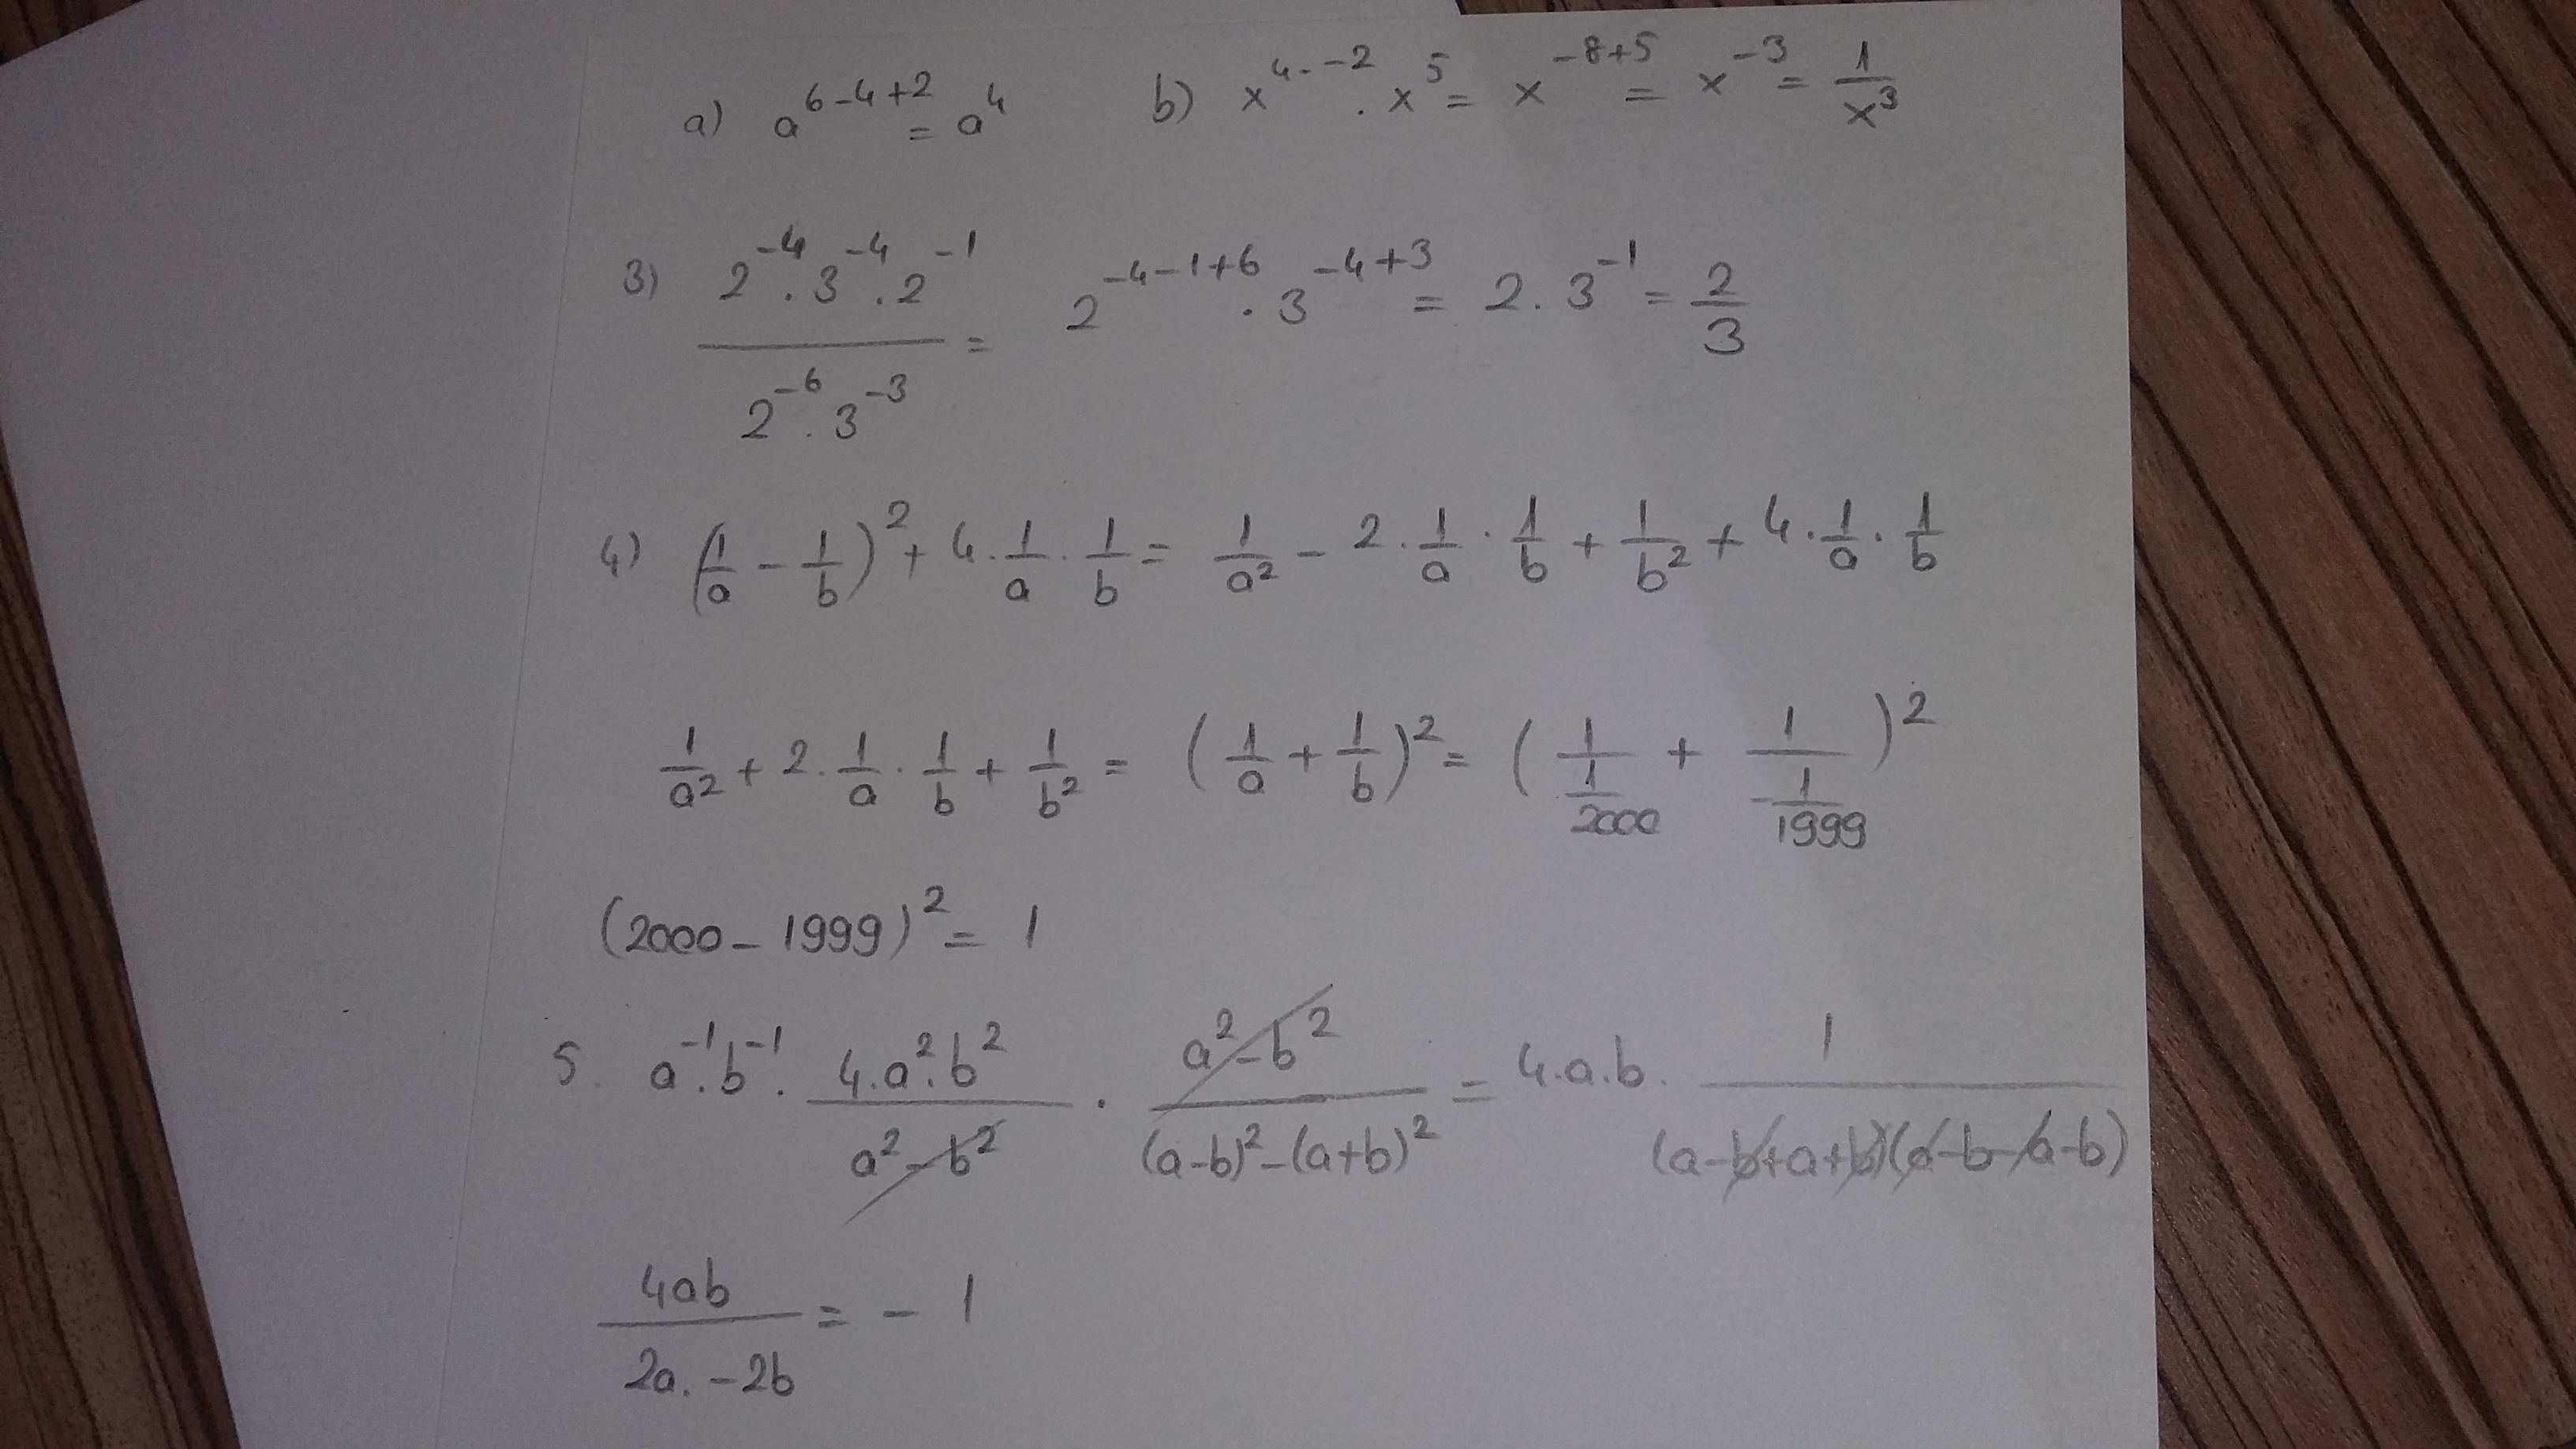 a) a^(6-4+2) = a^4 b) x^(4·-2) · x^5 = x^(-8+5) = x^(-3) = 1/x^3
3) (2^(-4) · 3^(-4) · 2^(-1)) / (2^(-6) · 3^(-3)) = 2^(-4-1+6) · 3^(-4+3) = 2 · 3^(-1) = 2/3
4) (1/a - 1/b)^2 + 4 · 1/a · 1/b = 1/a^2 - 2 · 1/a · 1/b + 1/b^2 + 4 · 1/a · 1/b
1/a^2 + 2 · 1/a · 1/b + 1/b^2 = (1/a + 1/b)^2 = (1/(1/2000) + 1/(-1/1999))^2
(2000 - 1999)^2 = 1
5. a^(-1) · b^(-1) · (4 · a^2 · b^2)/(a^2 - b^2) · (a^2 - b^2)/((a-b)^2 - (a+b)^2) = 4 · a · b · 1/((a-b+a+b)(a-b-a-b))
4ab/(2a · -2b) = -1